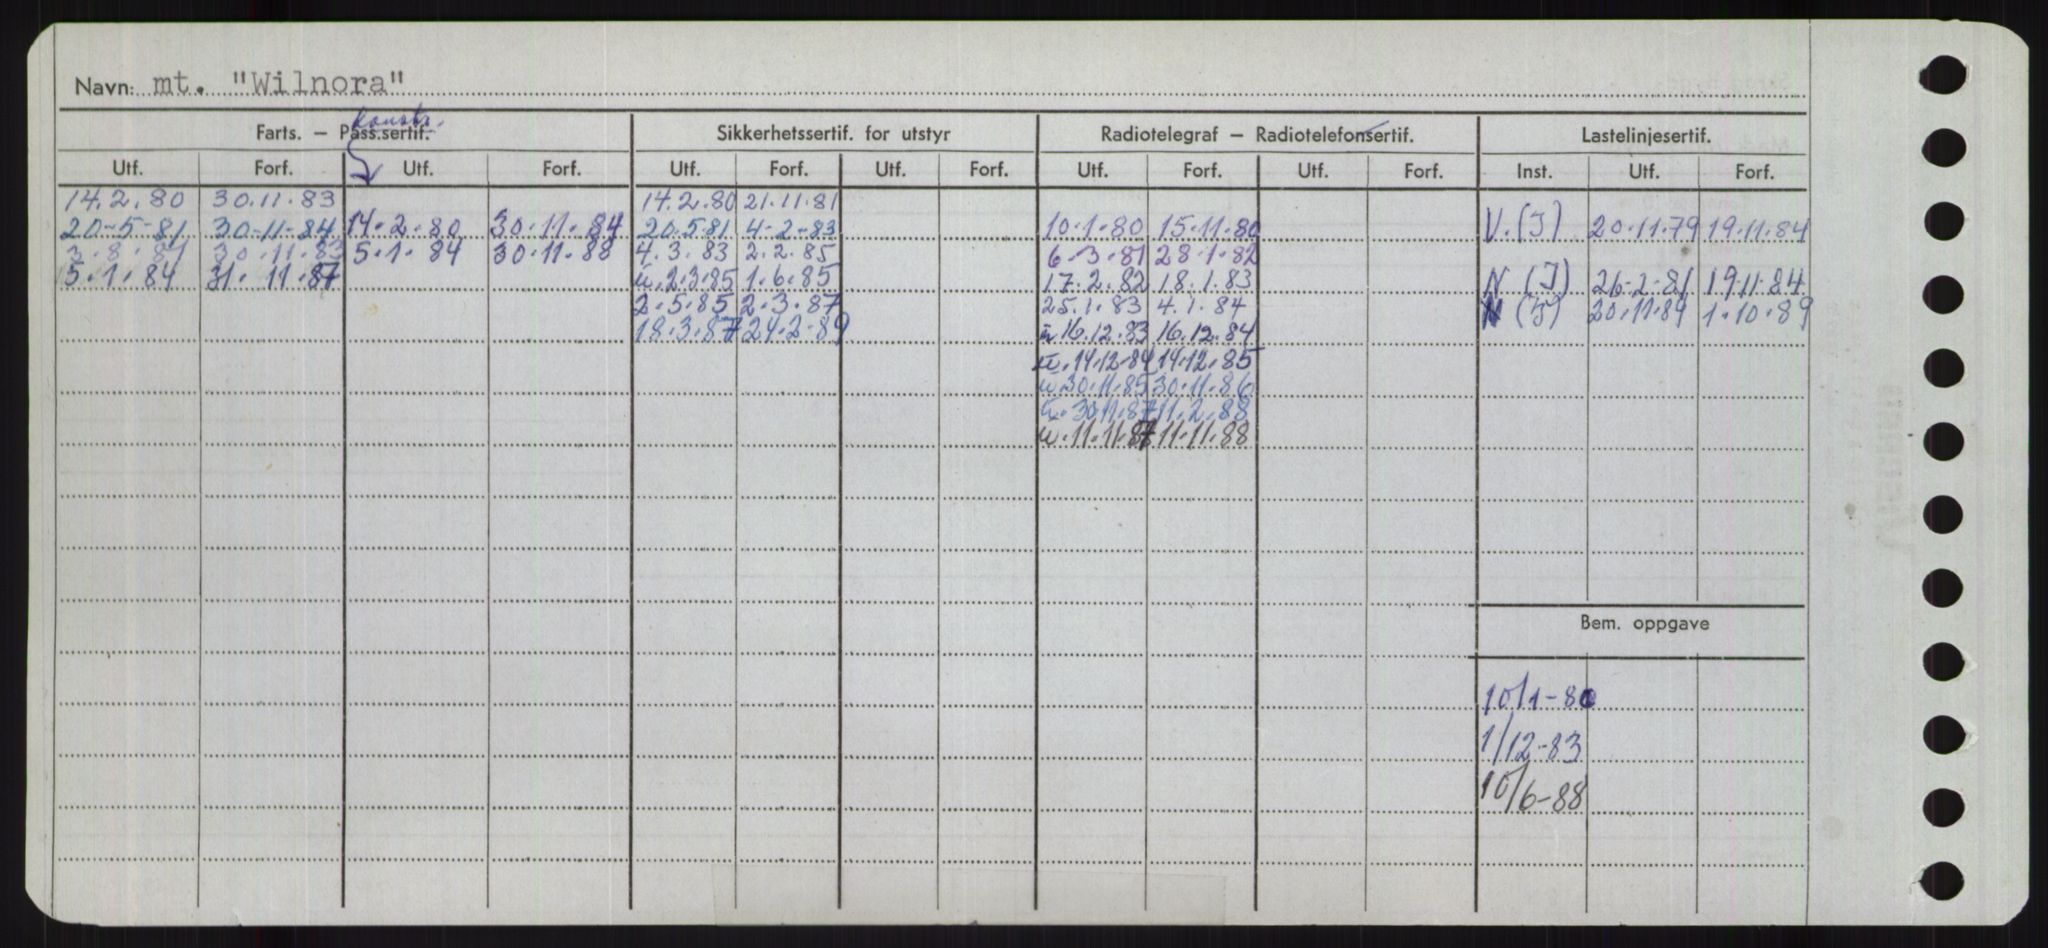 Navn: mt. "Wilnora"
konstr.
Farts. – Pass.sertif. Sikkerhetssertif. for utstyr Radiotelegraf – Radiotelefonsertif. Lastelinjesertif.
Utf. Forf. Utf. Forf. Utf. Forf. Utf. Forf. Utf. Forf. Utf. Forf. Inst. Utf. Forf.
14.2.80 30.11.83 14.2.80 21.11.81
20-5-81 30-11-84 14.2.80 30.11.84 20.5.81 4-2-83 10.1.80 15.11.80 V.(I) 20.11.79 19.11.84
3.8.81 30.11.83 5.1.84 30.11.88 4.3.83 2.2.85 6.3.81 28.1.82
5.1.84 31.11.87 2.3.85 1.6.85 17.2.82 18.1.83 N (I) 26-2-81 19.11.84
2.5.85 2.3.87 25.1.83 4.1.84 N (I) 20.11.84 1.10.89
18.3.87 24.2-89 16.12.83 16.12.84
14.12.84 14.12.85
30.11.85 30.11.86
30.11.87 11.2.88
11.11.87 11.11.88
Bem. oppgave
10/1-80
1/12-83
10/6-88